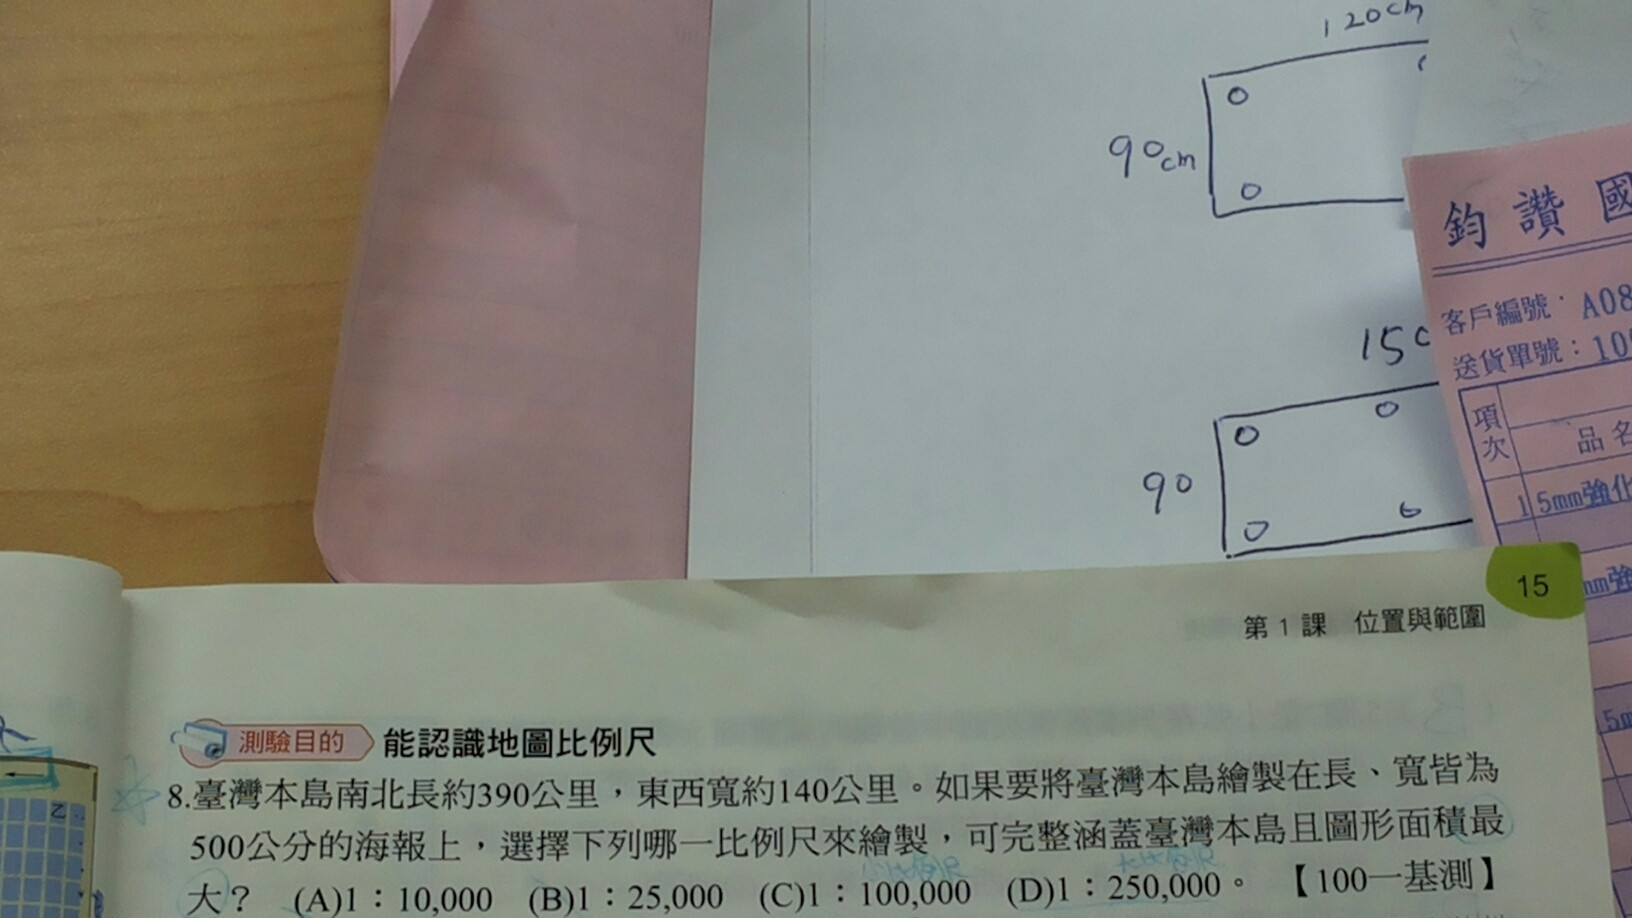 120cm
90cm
鈞讚國
客戶編號：A08
送貨單號：10
項次
品名
1 5mm強化
15
90
15
第1課 位置與範圍
測驗目的 能認識地圖比例尺
8.臺灣本島南北長約390公里，東西寬約140公里。如果要將臺灣本島繪製在長、寬皆為
500公分的海報上，選擇下列哪一比例尺來繪製，可完整涵蓋臺灣本島且圖形面積最
大？ (A)1：10,000 (B)1：25,000 (C)1：100,000 (D)1：250,000。 【100一基測】